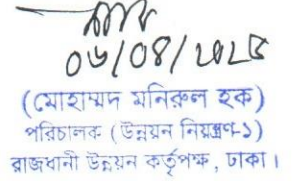 ০৬/০৪/২০২৫
(মোহাম্মদ মনিরুল হক)
পরিচালক (উন্নয়ন নিয়ন্ত্রণ-১)
রাজধানী উন্নয়ন কর্তৃপক্ষ, ঢাকা।